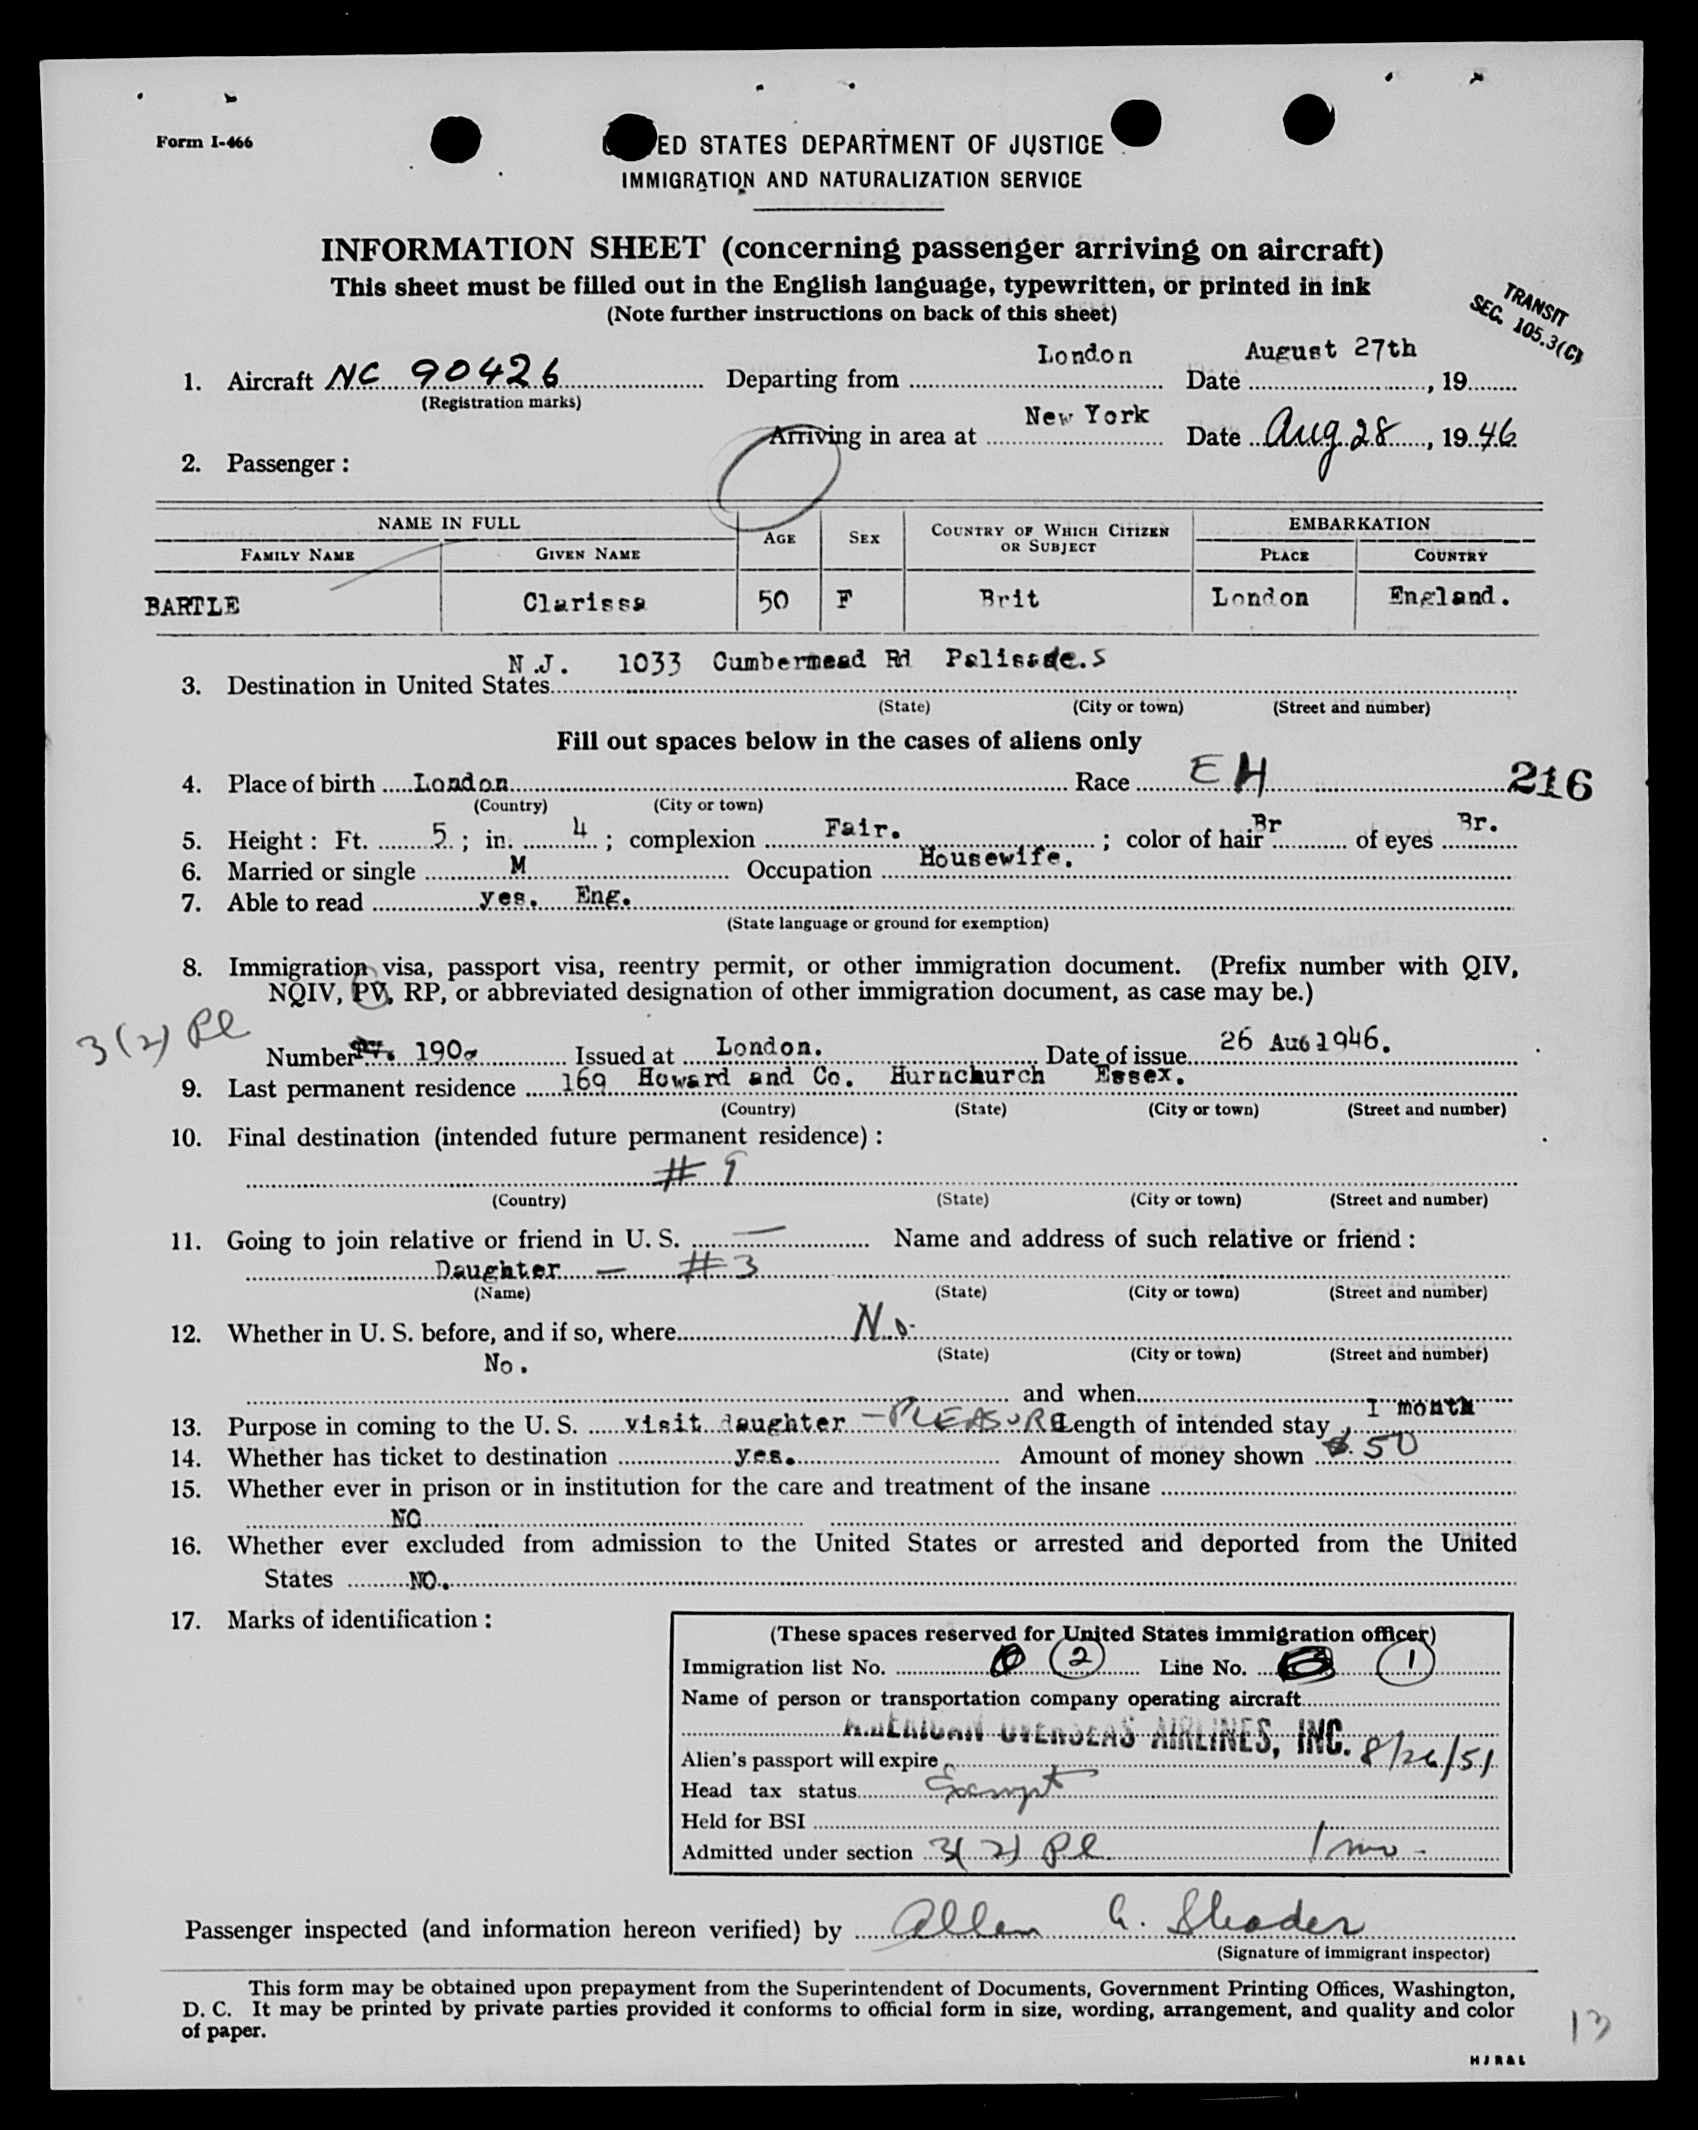 Form I-466
ED STATES DEPARTMENT OF JUSTICE
IMMIGRATION AND NATURALIZATION SERVICE
INFORMATION SHEET (concerning passenger arriving on aircraft)
This sheet must be filled out in the English language, typewritten, or printed in ink
(Note further instructions on back of this sheet)
TRANSIT
SEC. 105.3(C)
1. Aircraft NC 90426 Departing from London Date August 27th, 19
(Registration marks)
Arriving in area at New York Date Aug 28, 1946
2. Passenger:
NAME IN FULL AGE SEX COUNTRY OF WHICH CITIZEN OR SUBJECT EMBARKATION
FAMILY NAME GIVEN NAME PLACE COUNTRY
BARTLE Clarissa 50 F Brit London England.
3. Destination in United States N.J. 1033 Cumbermead Rd Palisade.S
(State) (City or town) (Street and number)
Fill out spaces below in the cases of aliens only
4. Place of birth London Race EH 216
(Country) (City or town)
5. Height: Ft. 5; in. 4; complexion Fair.; color of hair Br of eyes Br.
6. Married or single M Occupation Housewife.
7. Able to read yes. Eng.
(State language or ground for exemption)
8. Immigration visa, passport visa, reentry permit, or other immigration document. (Prefix number with QIV,
NQIV, PV, RP, or abbreviated designation of other immigration document, as case may be.)
3(2) Pl
Number 190 Issued at London. Date of issue 26 AUG 1946.
9. Last permanent residence 169 Howard and Co. Hurnchurch Essex.
(Country) (State) (City or town) (Street and number)
10. Final destination (intended future permanent residence):
# 9
(Country) (State) (City or town) (Street and number)
11. Going to join relative or friend in U. S. — Name and address of such relative or friend:
Daughter — #3
(Name) (State) (City or town) (Street and number)
12. Whether in U. S. before, and if so, where No.
(State) (City or town) (Street and number)
No.
and when
13. Purpose in coming to the U. S. visit daughter - PLEASURE Length of intended stay 1 month
14. Whether has ticket to destination yes. Amount of money shown $ 50
15. Whether ever in prison or in institution for the care and treatment of the insane
NO
16. Whether ever excluded from admission to the United States or arrested and deported from the United
States NO.
17. Marks of identification:
(These spaces reserved for United States immigration officer)
Immigration list No. 2 Line No. 1
Name of person or transportation company operating aircraft
AMERICAN OVERSEAS AIRLINES, INC.
Alien's passport will expire 8/26/51
Head tax status Exempt
Held for BSI
Admitted under section 3(2) Pl 1 mo -
Passenger inspected (and information hereon verified) by Allen G. Shader
(Signature of immigrant inspector)
This form may be obtained upon prepayment from the Superintendent of Documents, Government Printing Offices, Washington,
D. C. It may be printed by private parties provided it conforms to official form in size, wording, arrangement, and quality and color
of paper.
13
HJR&L